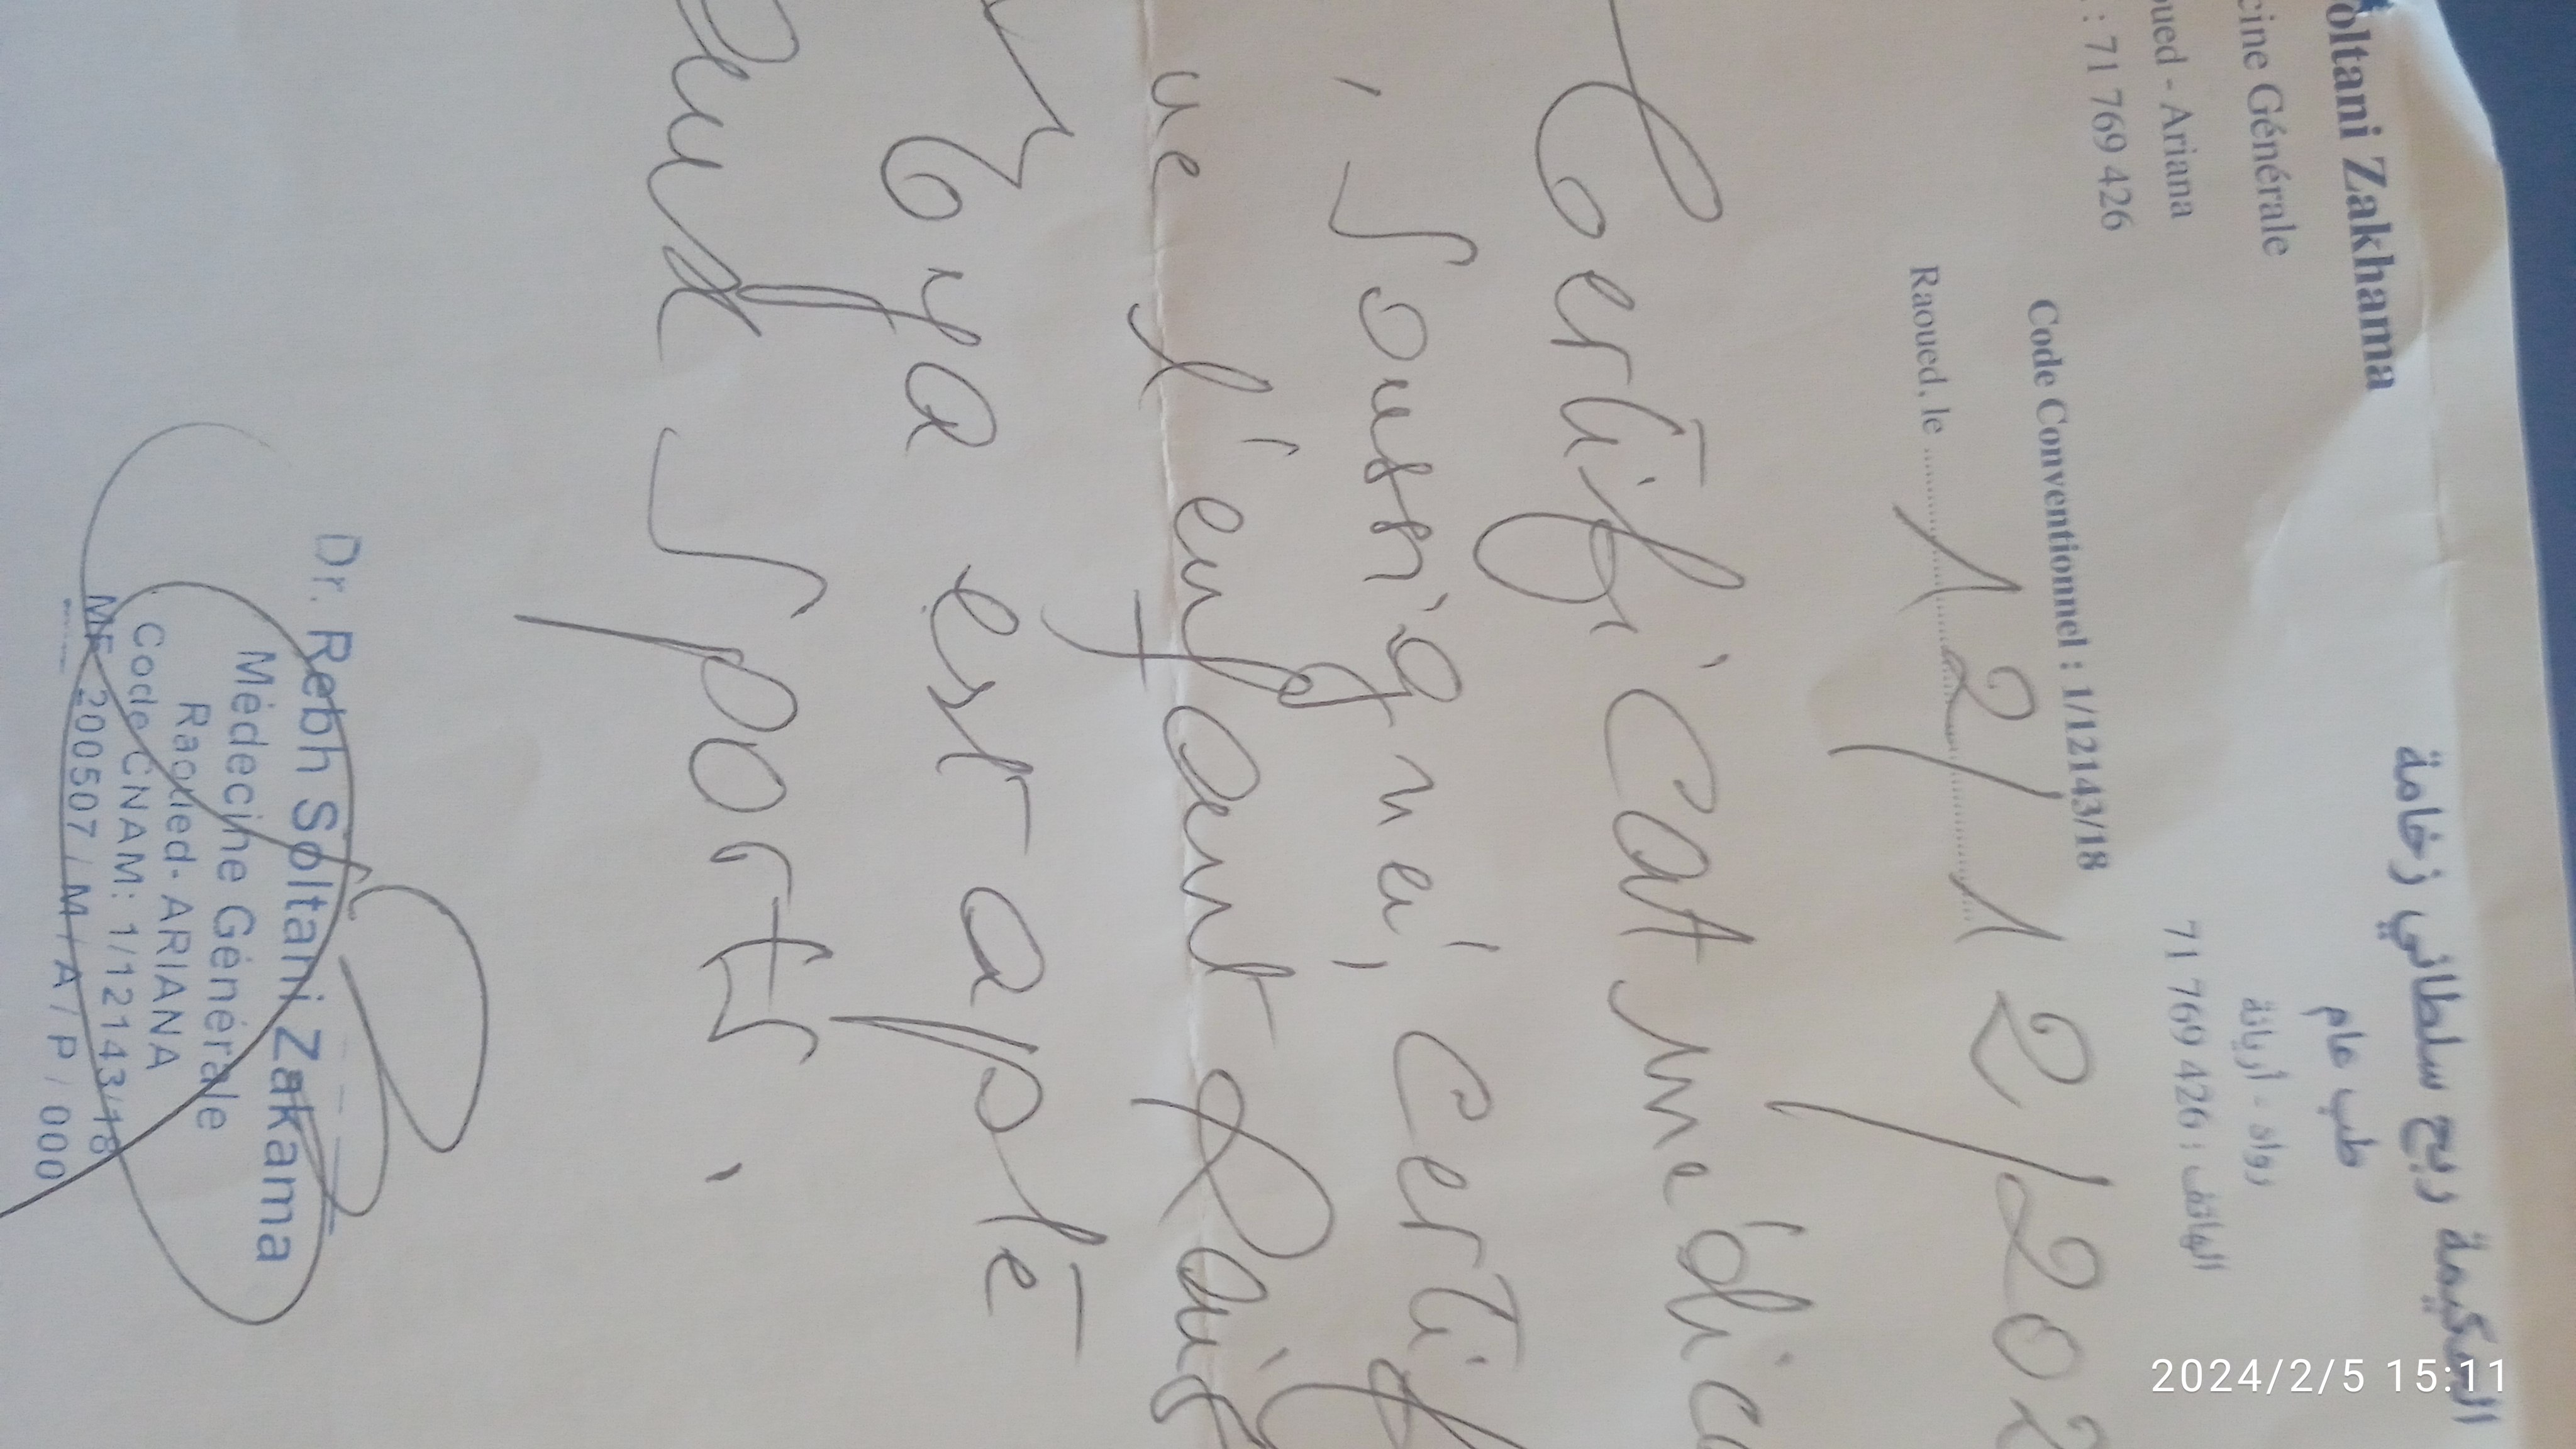 oltani Zakhama
cine Générale
oued - Ariana
: 71 769 426
الحكيمة ربح سلطاني زخامة
طب عام
رواد - أريانة
الهاتف : 426 769 71
Code Conventionnel : 1/12143/18
Raoued, le 12/12/202
Certificat médic
, soussigné, certif
ue l'enfant
Eya est apte
aux sports.
Dr. Rebh Soltani Zakama
Médecine Générale
Raoued- ARIANA
Code CNAM: 1/12143/18
MF 200507 / M / A / P / 000
2024/2/5 15:11